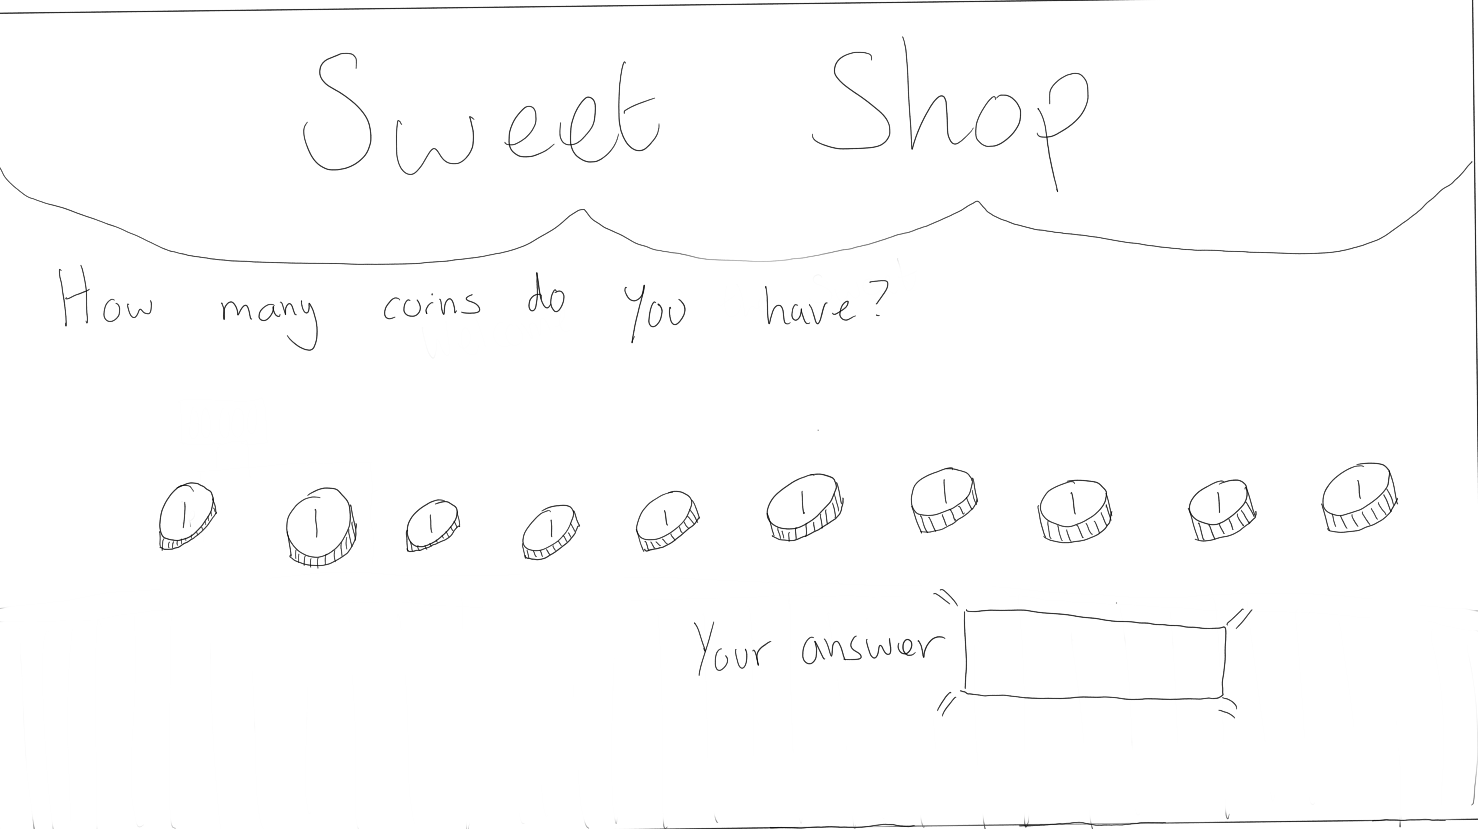 Sweet Shop
How many coins do you have?
1 1 1 1 1 1 1 1 1 1
Your answer